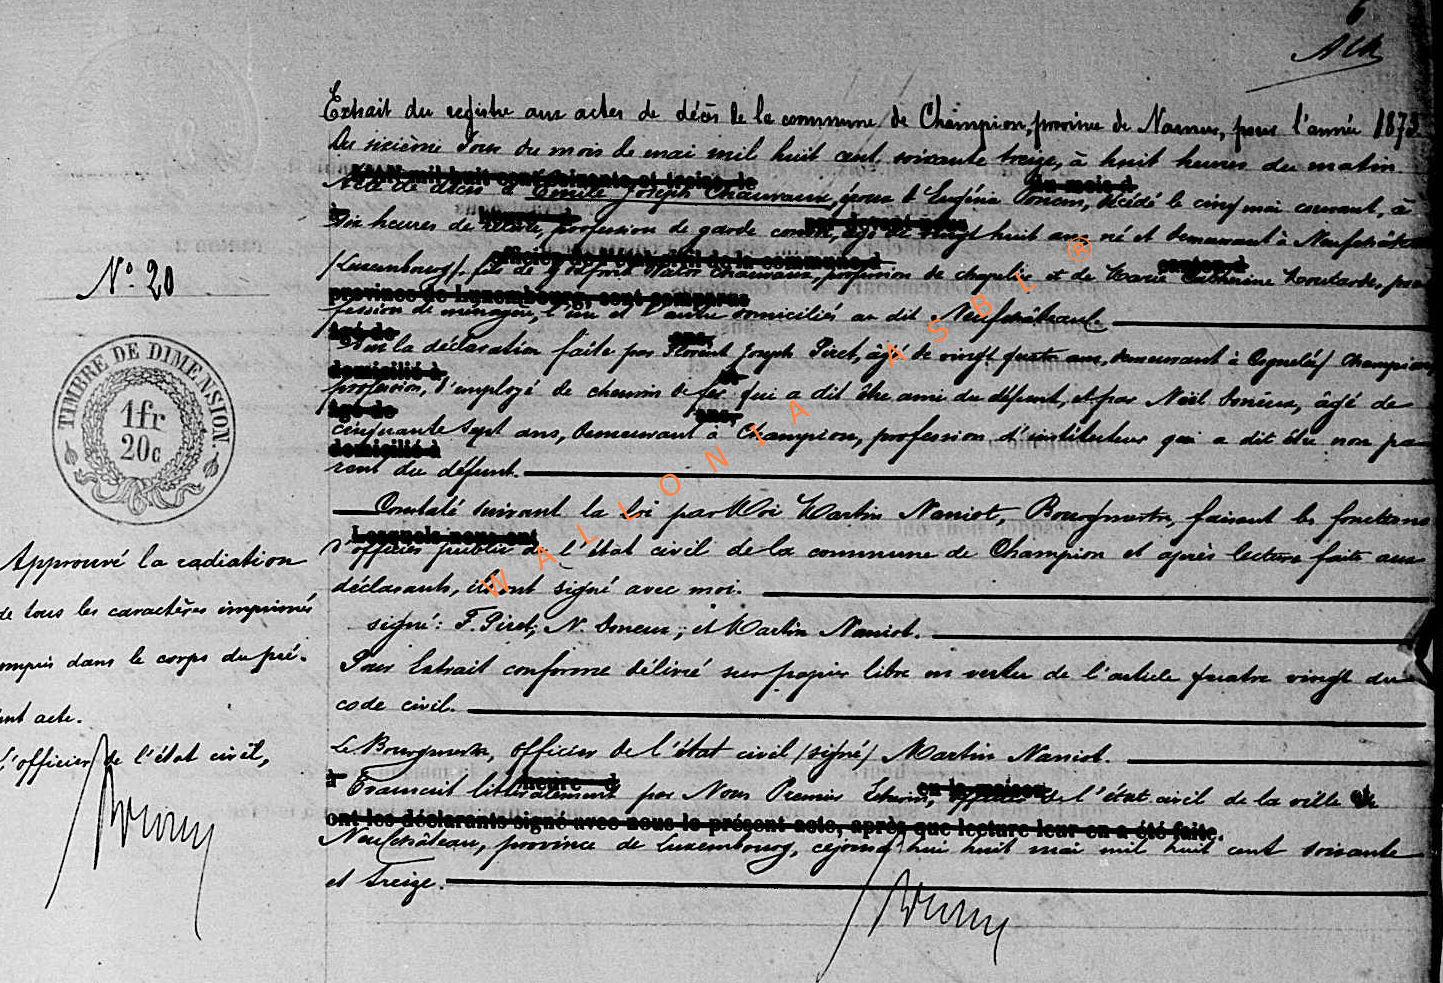 6
N° 20
TIMBRE DE DIMENSION
1fr
20c
Extrait du registre aux actes de décès de la commune de Champion, province de Namur, pour l'année 1873.
Du sixième jour du mois de mai mil huit cent soixante treize, à huit heures du matin
Acte de décès d'Emile Joseph Chauvaux, époux d'Eugénie, décédé le cinq mai courant, à
dix heures de, profession de garde, âgé de vingt huit ans né et demeurant à Neufchâteau
(Luxembourg), fils de Chauvaux, profession de chapelier et de Marie Catherine, pro
fession de ménagère, l'un et l'autre domiciliés au dit Neufchâteau.
Sur la déclaration faite par Florent Joseph Piret, âgé de vingt quatre ans, demeurant à Cognelée / Champion
profession d'employé de chemin de fer qui a dit être ami du défunt, et par Noël Doneux, âgé de
cinquante sept ans, demeurant à Champion, profession d'instituteur qui a dit être non pa
rent du défunt.
Constaté suivant la loi par Moi Martin Naniot, Bourgmestre, faisant les fonctions
d'officier public de l'état civil de la commune de Champion et après lecture faite aux
déclarants, ils ont signé avec moi.
signé: F. Piret; N. Doneux; et Martin Naniot.
Pour Extrait conforme délivré sur papier libre en vertu de l'article quatre vingt du
code civil.
Le Bourgmestre, officier de l'état civil (signé) Martin Naniot.
Transcrit littéralement par Nous Premier Echevin, officier de l'état civil de la ville de
ont les déclarants signé avec nous le présent acte, après que lecture leur en a été faite.
Neufchâteau, province de Luxembourg, cejourd'hui huit mai mil huit cent soixante
et treize.
Approuvé la radiation
de tous les caractères imprimés
compris dans le corps du pré-
sent acte.
L'officier de l'état civil,
WALLONIA ASBL ®